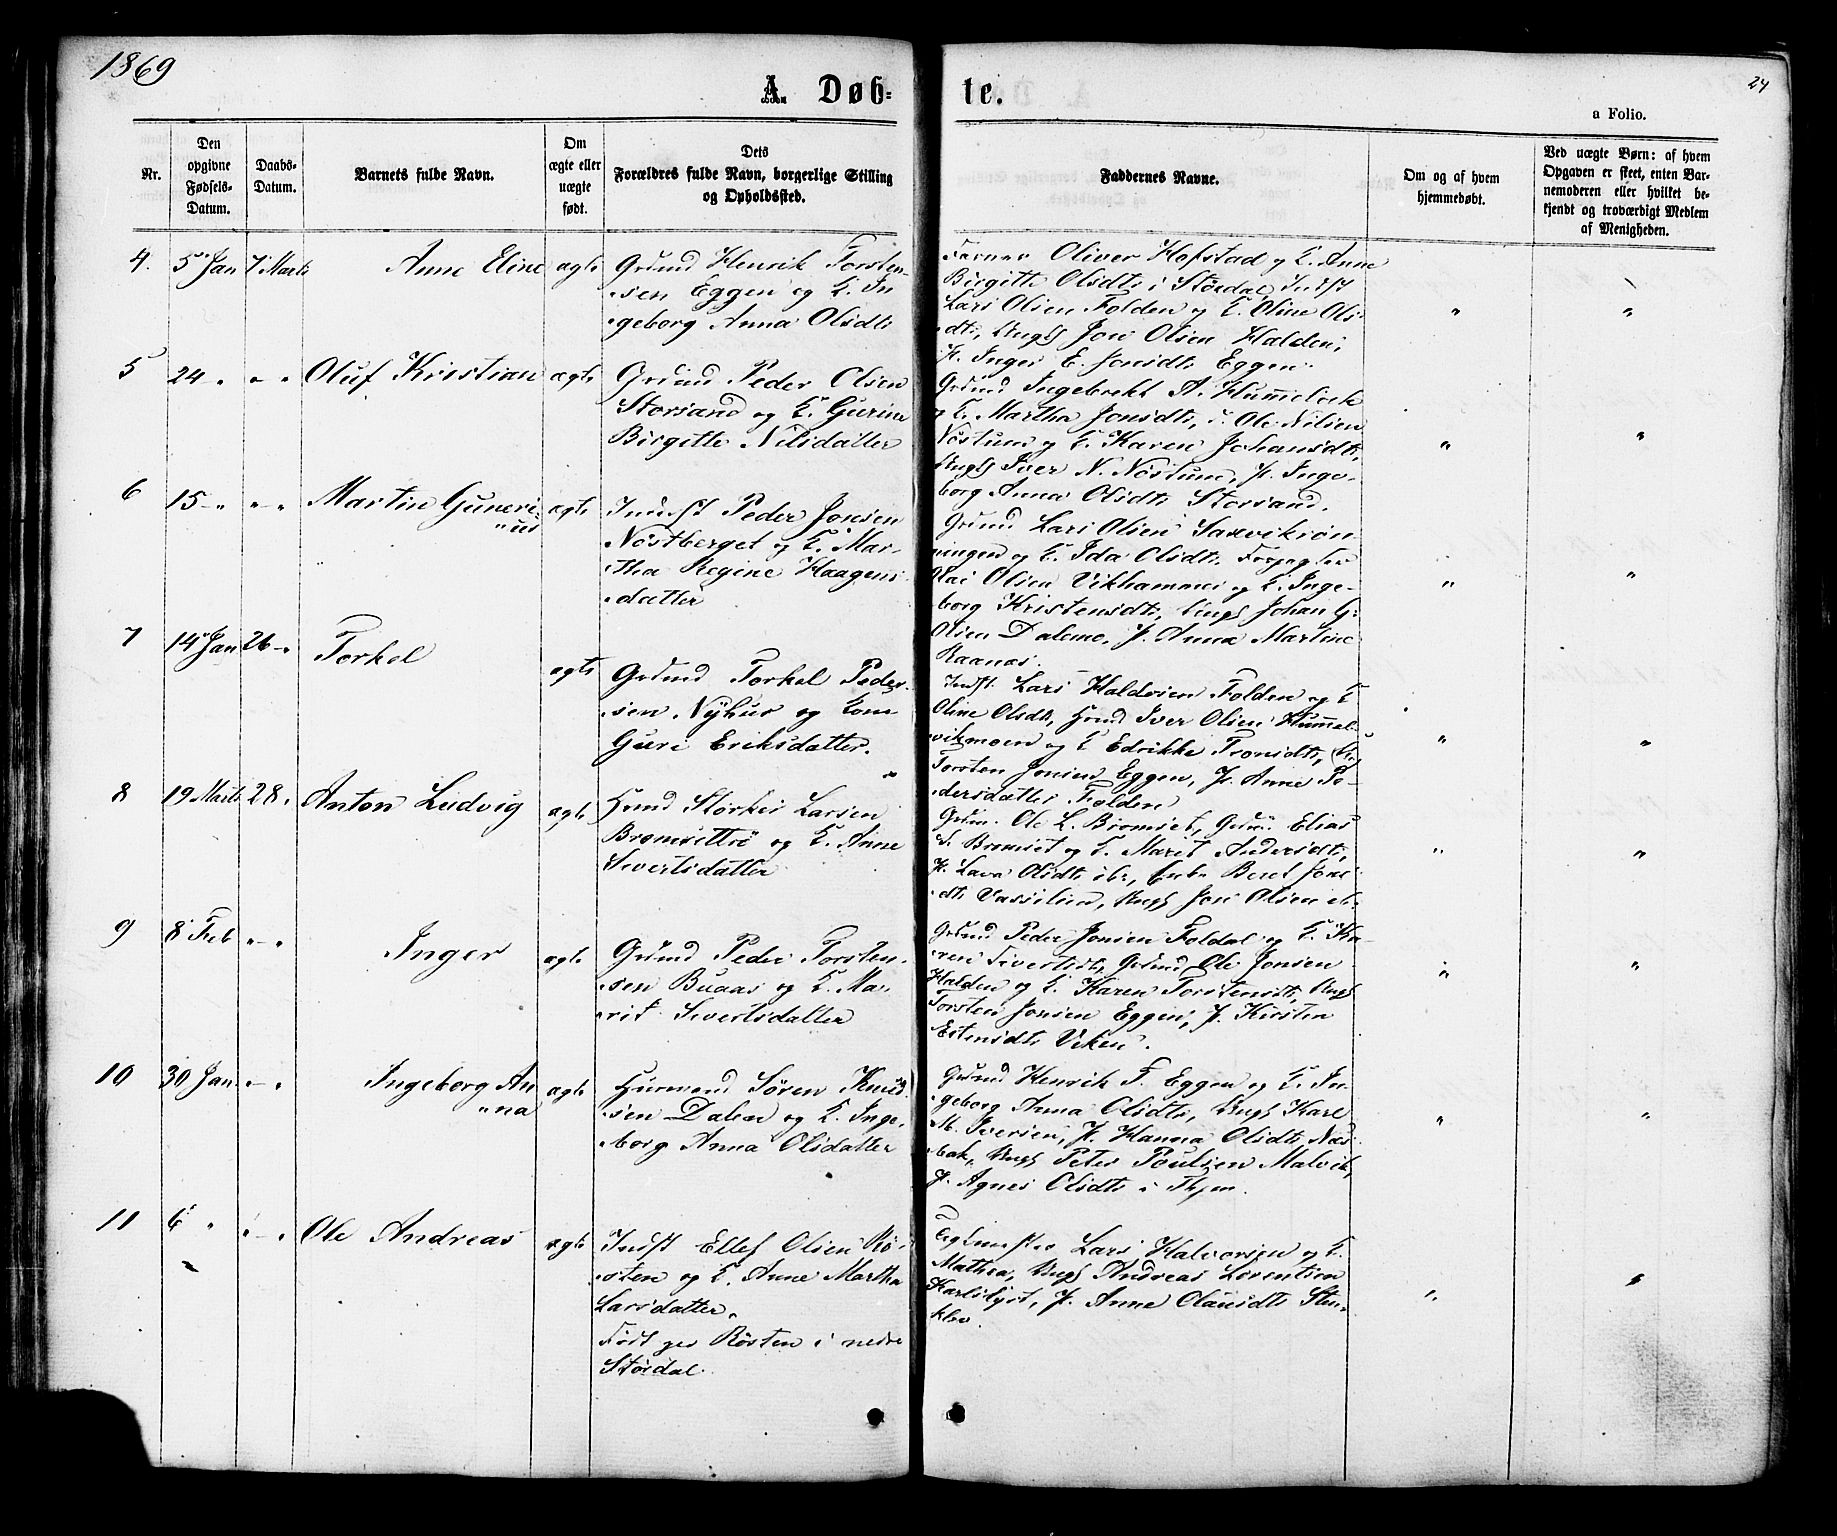 1869
24
A. Døb=
te.
a Folio.
Nr.
Den
opgivne
Fødsels-
Datum.
Daabs-
Datum.
Barnets fulde Navn.
Om
ægte eller
uægte
født.
Dets
Forældres fulde Navn, borgerlige Stilling
og Opholdssted.
Faddernes Navne.
Om og af hvem
hjemmedøbt.
Ved uægte Børn: af hvem
Opgaven er skeet, enten Bar-
nemoderen eller hvilket be-
kjendt og troværdigt Medlem
af Menigheden.
4. 5 Jan 7 Marts Anne Eline ægte
Grdmd Henrik Torsten-
sen Eggen og K. In
geborg Anna Olsdtr
Oliver Hofstad og K. Anne
Birgitte Olsdtr i Størdal, Indst
Lars Olsen Folden og K. Oline Ols-
dtr, Ungk Jon Olsen Halden,
P. Inger E. Jonsdtr Eggen.
5 24 " " " Oluf Kristian ægte
Grdmd Peder Olsen
Storsand og K. Gurine
Birgitte Nilsdatter
Grdmd Ingebrekt A. Hummelvik
og K. Martha Jonsdtr, Ole Nilsen
Nøstum og K. Karen Johansdtr,
Ungk Iver N. Nøstum, P. Inge-
borg Anna Olsdtr Storsand.
6 15 - " " - " Martin Guneri-
"us ægte
Indst Peder Jonsen
Nøstberget og K. Mar-
tha Regine Haagens-
datter
Grdmd Lars Olsen Saxvikrøn-
ningen og K. Ida Olsdtr, Forpagter
Olsen Vikhammer og K. Inge-
borg Kristensdtr, Ungk Johan G.
Olsen Dalemo, P. Anna Martine
Raanaas.
7 14 Jan 26 - " Torkel ægte
Grdmd Torkel Peder-
sen Nyhus og Kone
Guri Eriksdatter.
Indst. Lars Haldorsen Folden og K
Oline Olsdtr, Hmd Iver Olsen Hummel-
vikmoen og K Edrikke Tronsdtr,
Torsten Jonsen Eggen, P. Anne Pe-
dersdatter Folden
8 19 Marts 28 " Anton Ludvig ægte
Hmd Størker Larsen
Bromsettrø og K. Anne
Sivertsdatter
Grdm. Ole L. Bromset, Grdm. Elias
S. Bromset og K. Marit Andersdtr,
P. Lava Olsdtr ibr, Enke Beret Jons
dtr Vassilien, Ungk Jon Olsen ib.
9 8 Feb " - " Inger ægte
Grdmd Peder Torsten-
sen Buaas og K. Ma-
rit Sivertsdatter
Grdmd Peder Jonsen Foldal og K. Ka-
ren Sivertsdtr, Grdmd Ole Jonsen
Halden og K. Karen Torstensdtr, Ungk
Torsten Jonsen Eggen, P. Kirsten
Estensdtr Viken.
10 30 Jan. " - " Ingeborg An
"na ægte
Husmand Søren Knud-
sen Dalen og K. Inge-
borg Anna Olsdatter
Grdmd Henrik T. Eggen og K. In-
geborg Anna Olsdtr, Ungk Karl
M. Iversen, P. Hanna Olsdtr Næs-
bak, Ungk Peter Poulsen Malvik,
P. Agnes Olsdtr i Thjem.
11 6 " " - " Ole Andreas ægte
Indst Ellef Olsen Rø-
sten og K. Anne Martha
Larsdatter.
Født paa Røsten i nedre
Størdal.
Teglmester Lars Halvorsen og K.
Mathea, Ungk Andreas Lorentsen
Karlslyst, P. Anne Olausdtr Sten-
klev.